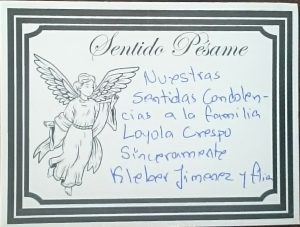 Sentido Pésame
Nuestras
Sentidas Condolen-
cias a la familia
Loyola Crespo
Sinceramente
Kleber Jimenez y